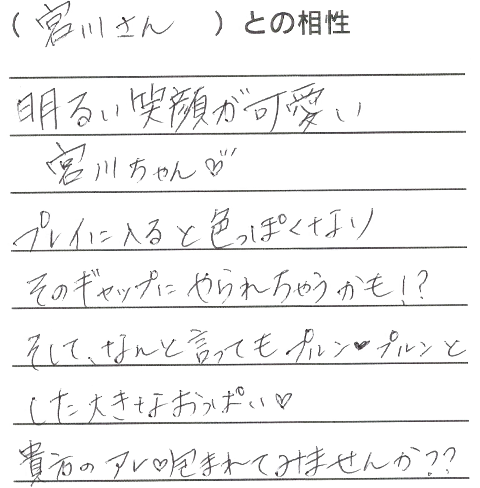 (宮川さん)との相性
明るい笑顔が可愛い
宮川ちゃん♡
プレイに入ると色っぽくなり
そのギャップにやられちゃうかも!?
そして、なんと言ってもプルン♥プルンと
した大きなおっぱい♡
貴方のアレ♡包まれてみませんか??